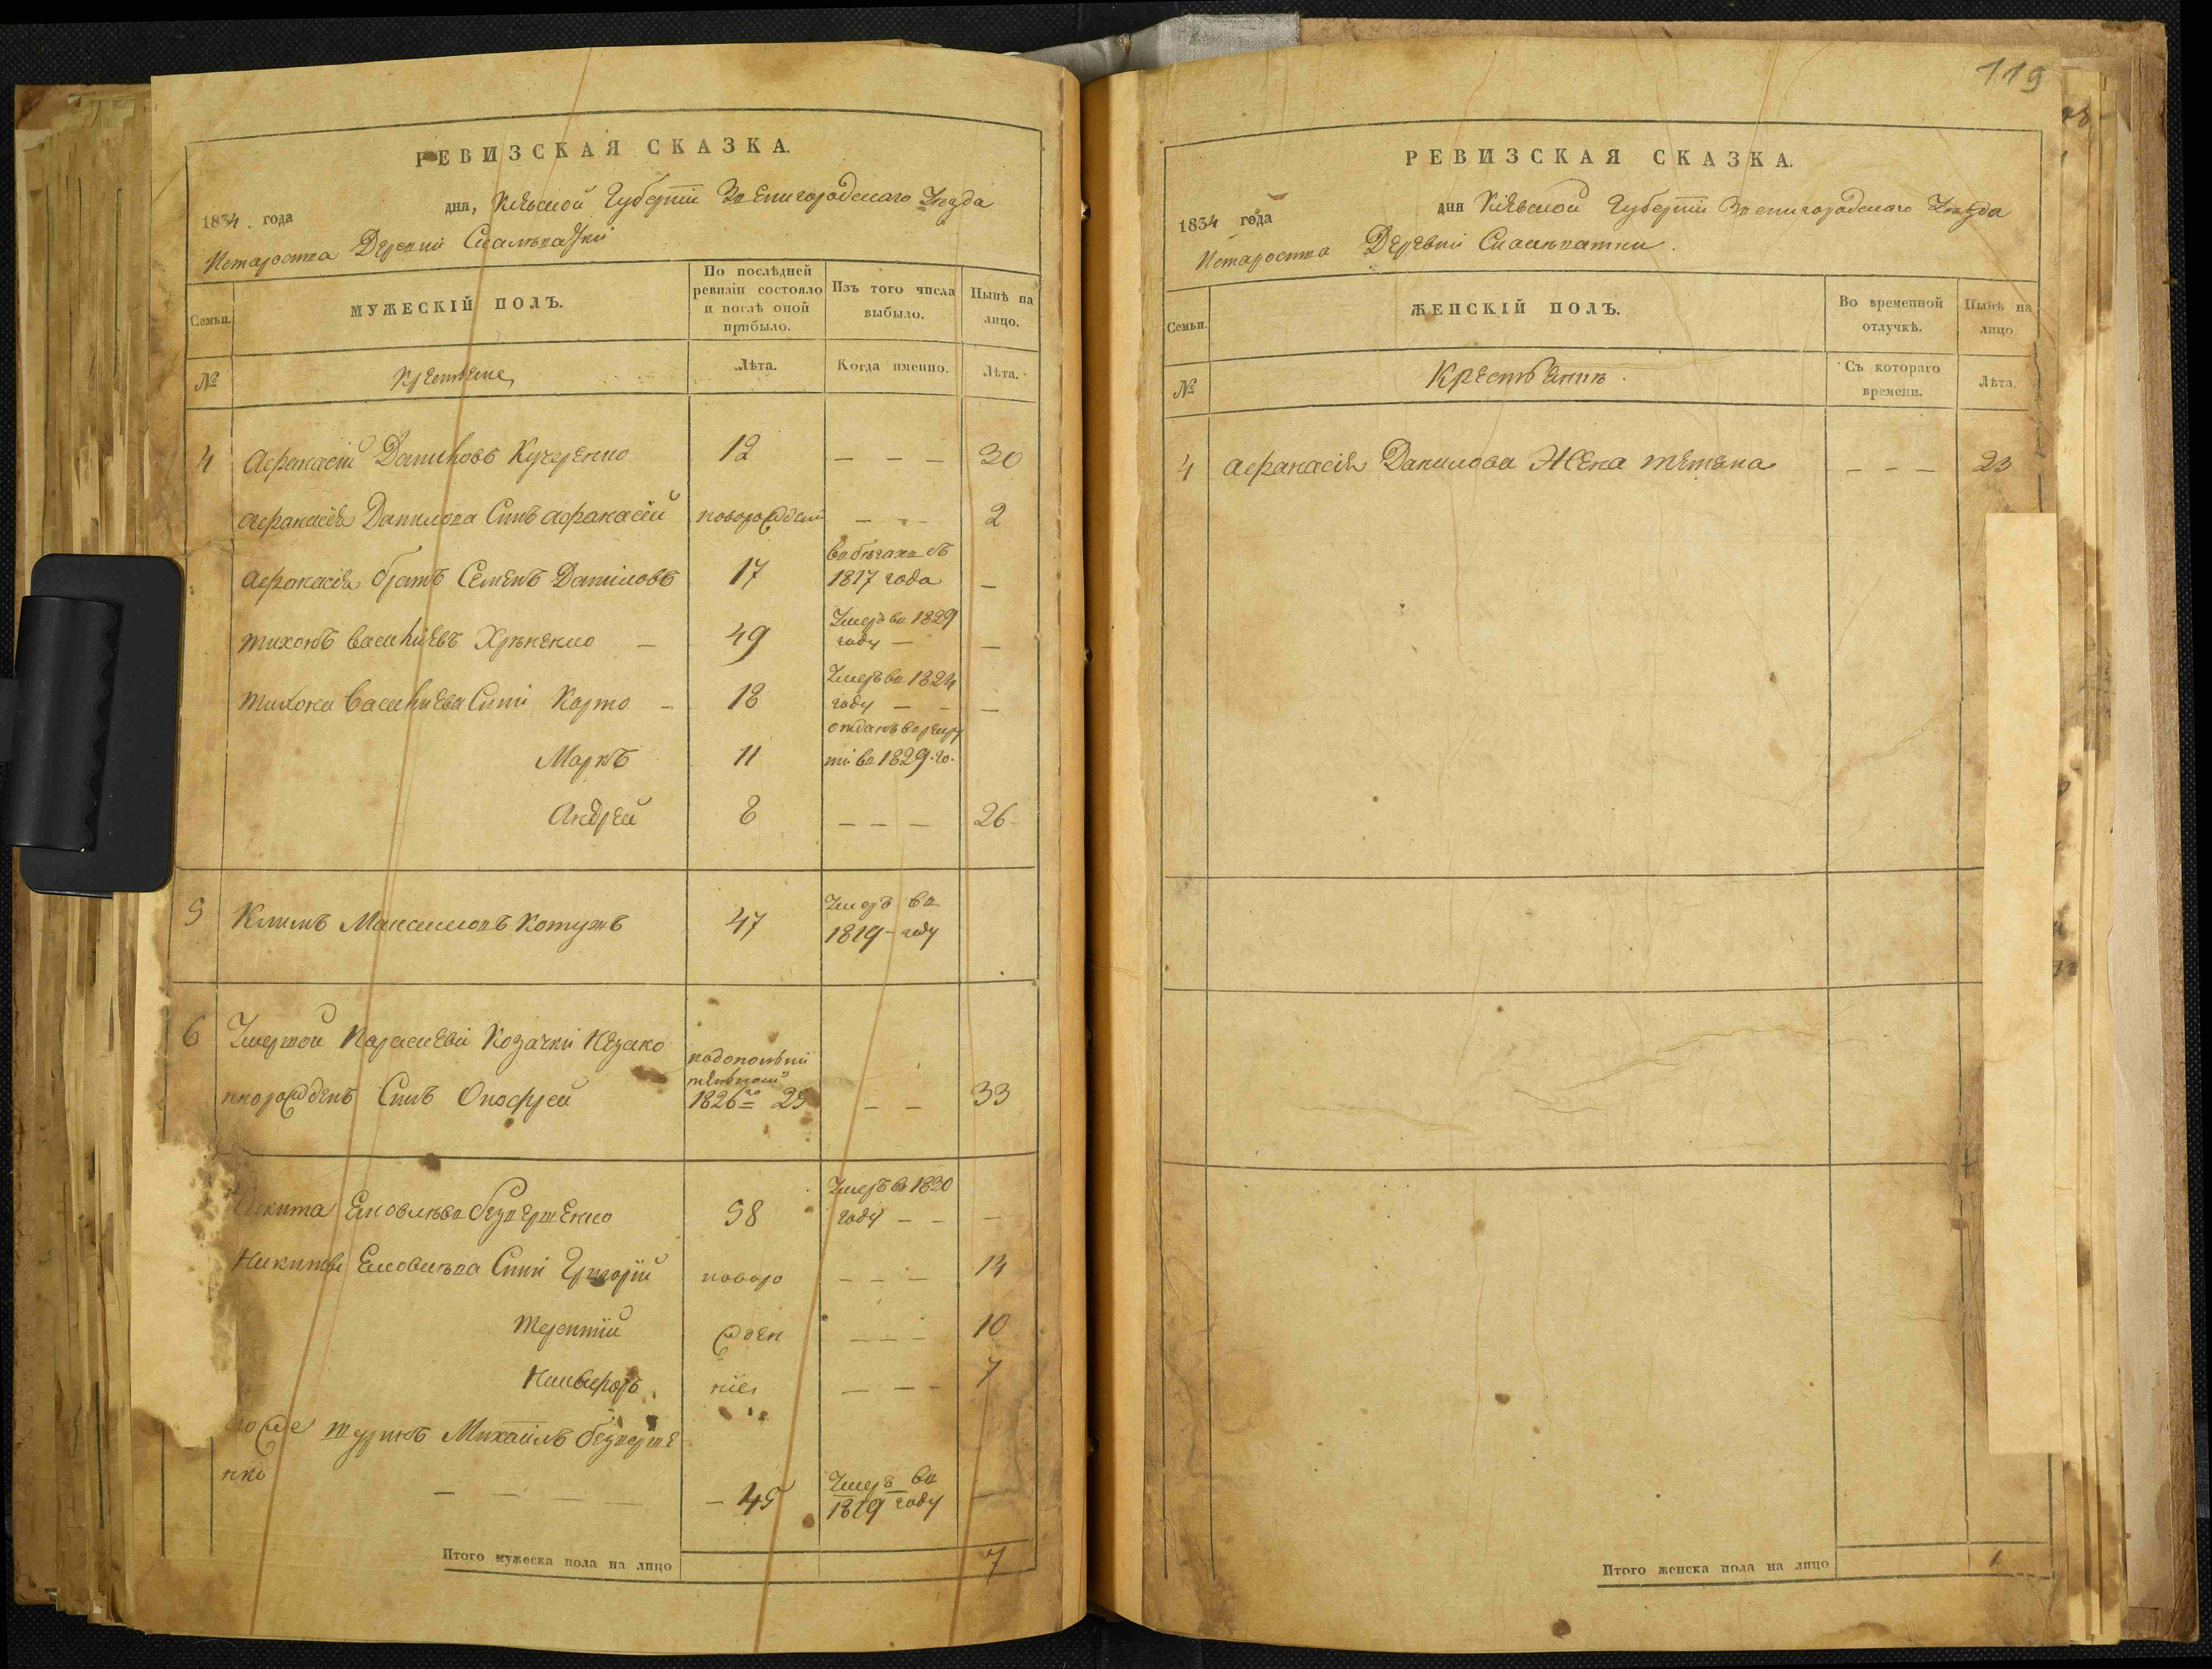 РЕВИЗСКАЯ СКАЗКА.
1834 года дня, Кіевской Губерніи Звенигородскаго Уезда
Староства Деревни Скалеватки
Семьи. МУЖЕСКІЙ ПОЛЪ. По послѣдней ревизіи состояло и послѣ оной прибыло. Изъ того числа выбыло. Нынѣ на лицо.
№ Крестяне Лѣта. Когда именно. Лѣта.
4 Афанасій Даниловъ Кучеренко 12 — — — 30
Афанасія Данилова Синъ Афанасій новорожденій — — — 2
Афанасія братъ Семенъ Даниловъ 17 въ бѣгахъ съ 1817 года —
Тихонъ Василіевъ — 49 Умеръ въ 1829 году — —
Тихона Василиева Сини Карпо — 18 Умеръ въ 1824 году — — —
Маркъ 11 отданъ въ рекрути въ 1829 го.
Андрей 8 — — — 26
5 Климъ Максимовъ 47 Умеръ въ 1819 — году
6 Умершой Козачки
Синъ Онофрей 1826го 25 — — 33
Никита Безвершенко 58 Умеръ въ 1820 году — — —
Никиты Сини Григорій новоро — — — 14
Терентій жден — — — 10
Никифоръ ніе — — — 7
Михаилъ Безверше
нко — — — — — 45 Умеръ въ 1819 году —
Итого мужеска пола на лицо 7
119
РЕВИЗСКАЯ СКАЗКА.
1834 года дня Кіевской Губерніи Звенигородскаго Уезда
Староства Деревни Скалеватки.
Семьи. ЖЕНСКІЙ ПОЛЪ. Во временной отлучкѣ. Нынѣ на лицо
№ Крестянки Съ котораго времени. Лѣта.
4 Афанасія Данилова Жена Тетяна — — — 23
Итого женска пола на лицо 1